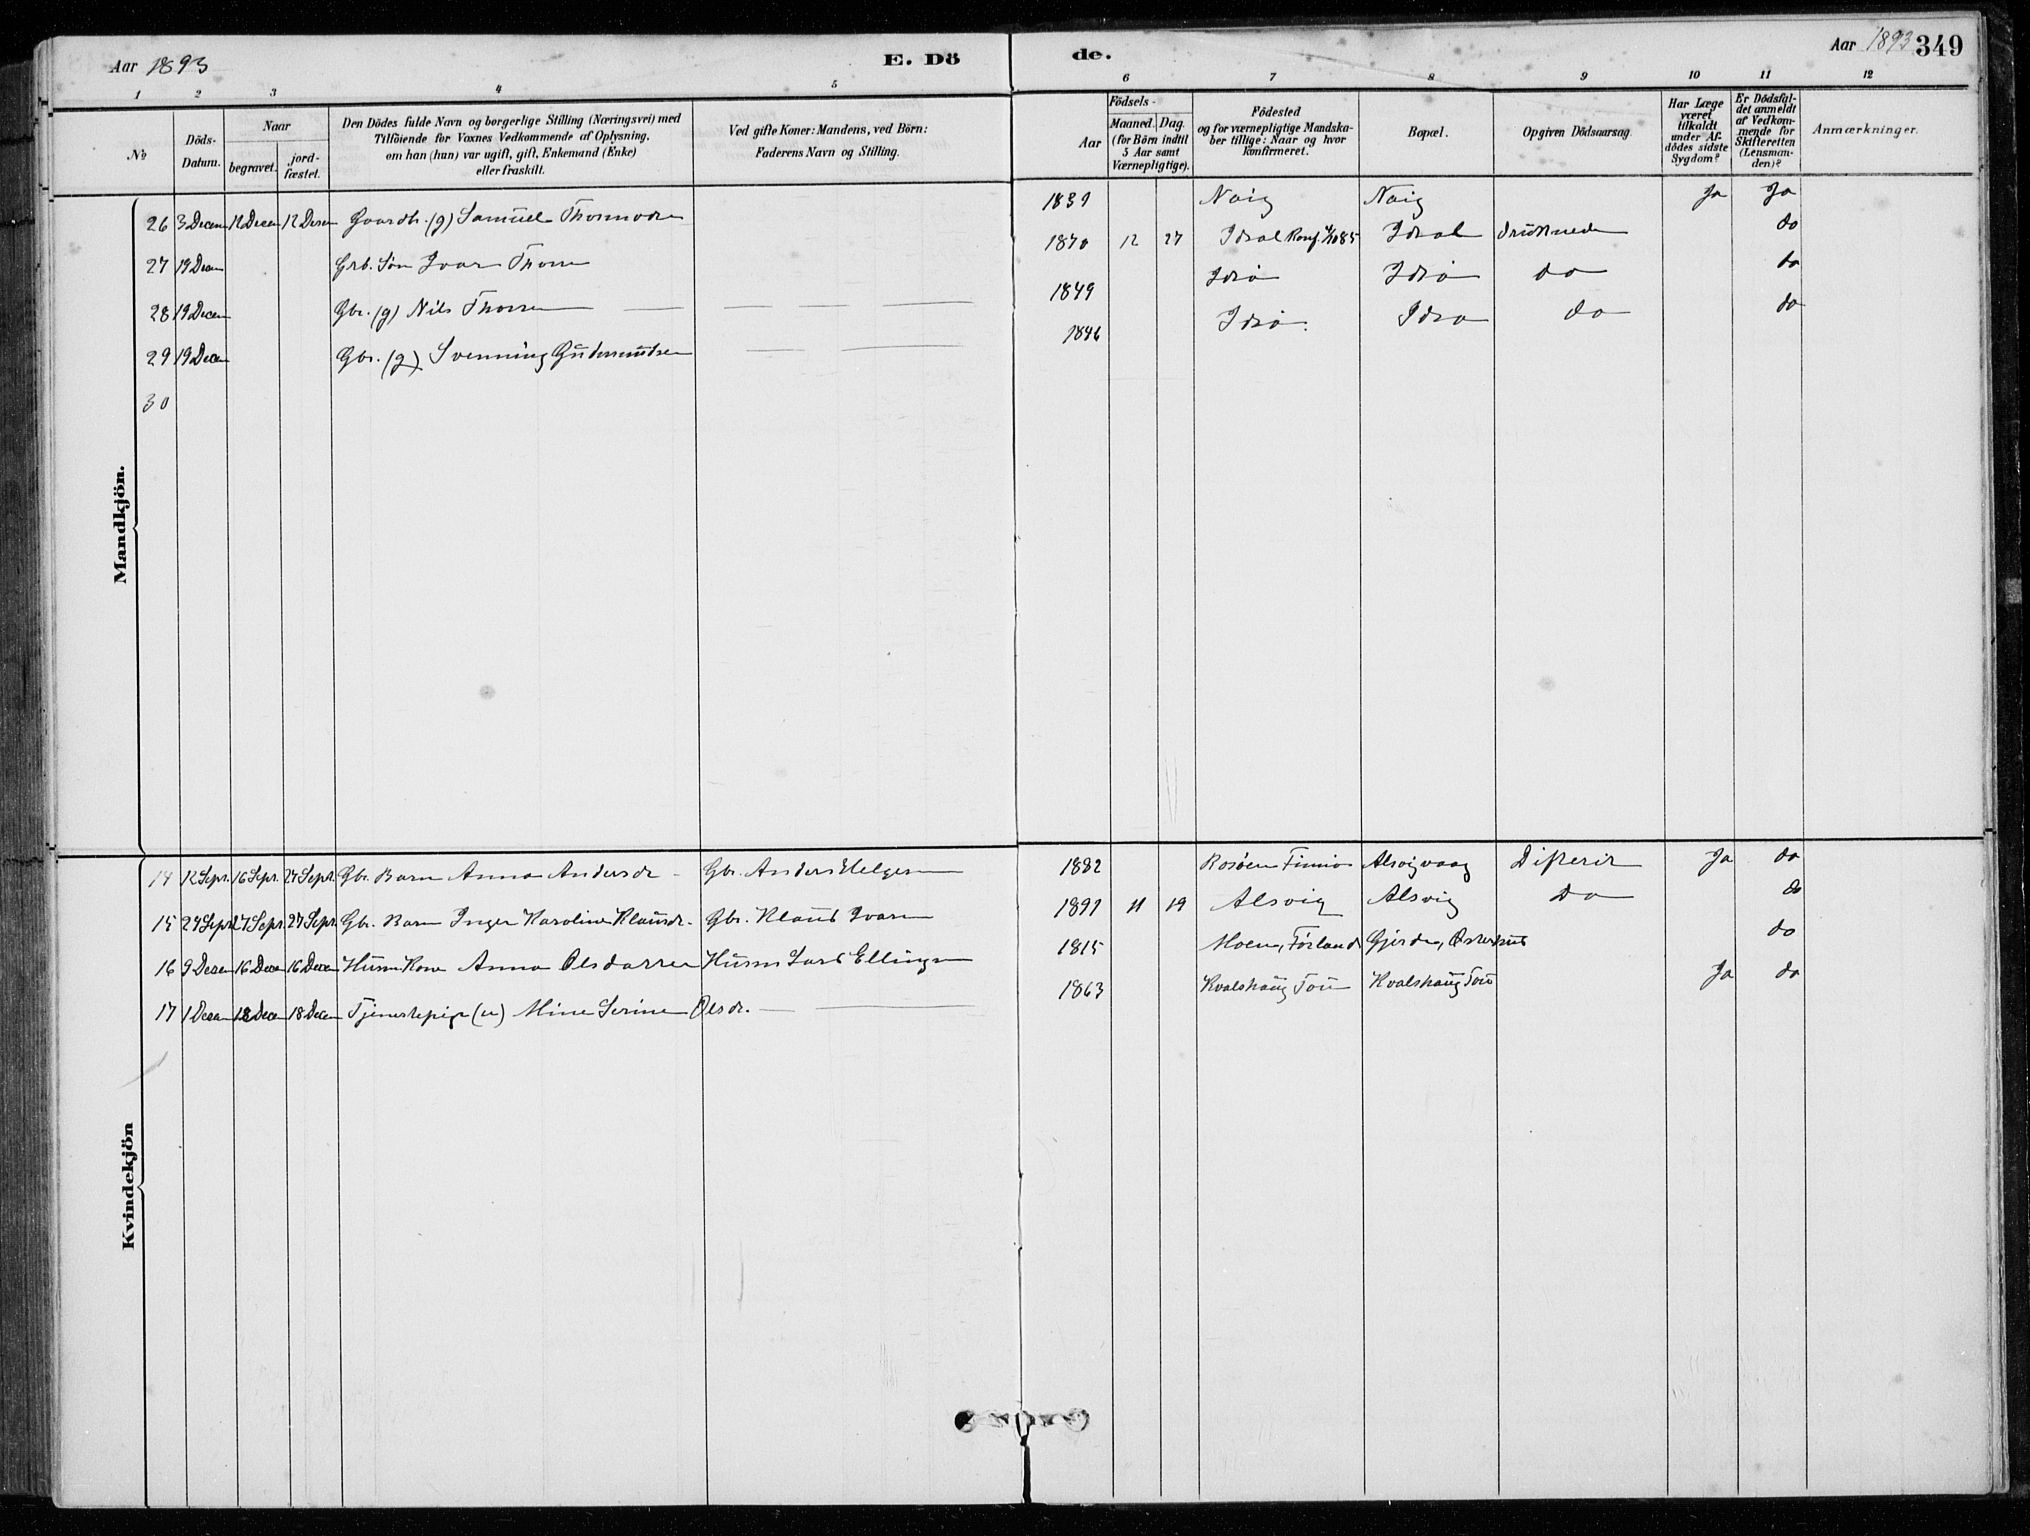 Aar 1893
E. Dö
de.
Aar 1893
349
1 2 3 4 5 6 7 8 9 10 11 12
№
Döds-
Datum.
Naar
begravet.
jord-
fæstet.
Den Dödes fulde Navn og borgerlige Stilling (Næringsvei) med
Tilföiende for Voxnes Vedkommende af Oplysning,
om han (hun) var ugift, gift, Enkemand (Enke)
eller fraskilt.
Ved gifte Koner: Mandens, ved Börn:
Faderens Navn og Stilling.
Födsels-
Aar
Maaned.
Dag.
(for Börn indtil
5 Aar samt
Værnepligtige).
Födested
og for værnepligtige Mandska-
ber tillige: Naar og hvor
konfirmeret.
Bopæl.
Opgiven Dödsaarsag.
Har Læge
været
tilkaldt
under Af-
dödes sidste
Sygdom?
Er Dödsfal-
det anmeldt
af Vedkom-
mende for
Skifteretten
(Lensman-
den)?
Anmærkninger.
Mandkjön.
26 3 Decem 12 Decem 12 Decem Gaardbr. (g) Samuel Thormodsen 1839 Ja Ja
27 19 Decem Grb. Søn Ivar Thorsen 1870 12 27 Idsal Konf. 85 Idsal druknede do
28 19 Decem Gbr. (g) Nils Thorsen 1849 Idsø Idsø do do
29 19 Decem Gbr. (g) Svenning Gudmundsen 1846 Idsø Idsø do do
30
Kvindekjön
14 12 Sept. 16 Sept. 27 Sept. Gbr. Barn Anna Andersdr. Gbr. Anders Helgesen 1882 Alsvigvaag Difterit Ja do
15 24 Sept. 27 Sept. 27 Sept. Gbr. Barn Inger Karoline Klausdr. Gbr. Klaus Ivarsen 1891 11 19 Alsvig Alsvig Do do
16 9 Decem 16 Decem 16 Decem Husm. Kone Anna Olsdatter Husm. Lars Ellingsen 1815 Moen, Førland Gjerde, Østerhus do
17 1 Decem 18 Decem 18 Decem Tjenestepige (u) Mine Serine Olsdr. 1863 Kvalshaug Tou Kvalshaug Tou Ja do